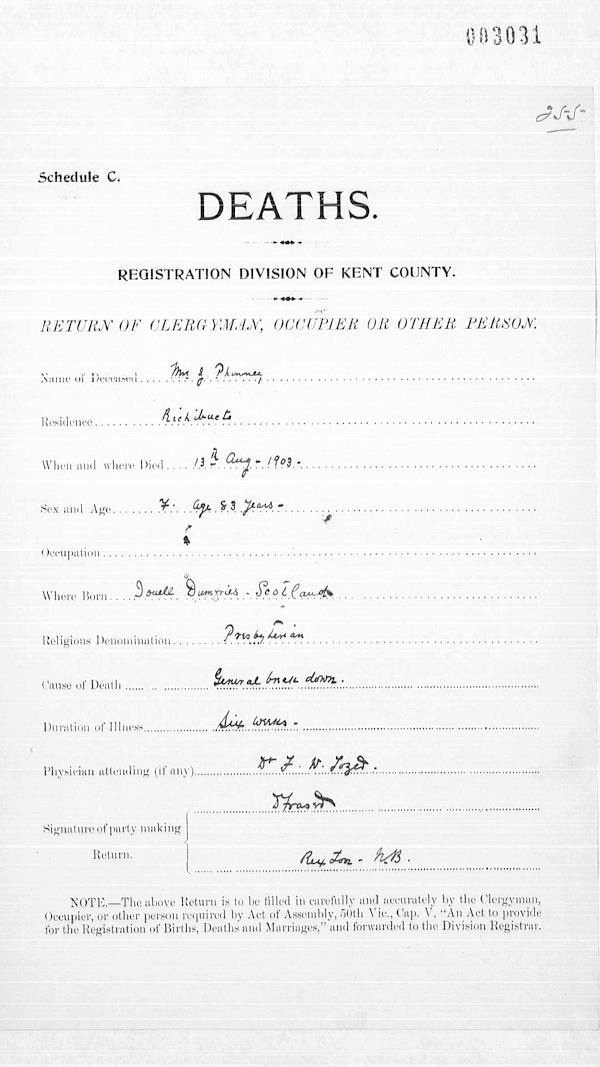 003031
255
Schedule C.
DEATHS.
REGISTRATION DIVISION OF KENT COUNTY.
RETURN OF CLERGYMAN, OCCUPIER OR OTHER PERSON.
Name of Deceased Mrs J Phinney
Residence Richibucto
When and where Died 13th Aug - 1903 -
Sex and Age F. Age 83 Years -
Occupation
Where Born Dumfries - Scotland
Religious Denomination Presbyterian
Cause of Death General break down.
Duration of Illness Six weeks -
Physician attending (if any) Dr F. W. Tozer.
Signature of party making
Return.
Rexton - N.B.
NOTE.—The above Return is to be filled in carefully and accurately by the Clergyman,
Occupier, or other person required by Act of Assembly, 50th Vic., Cap. V, "An Act to provide
for the Registration of Births, Deaths and Marriages," and forwarded to the Division Registrar.